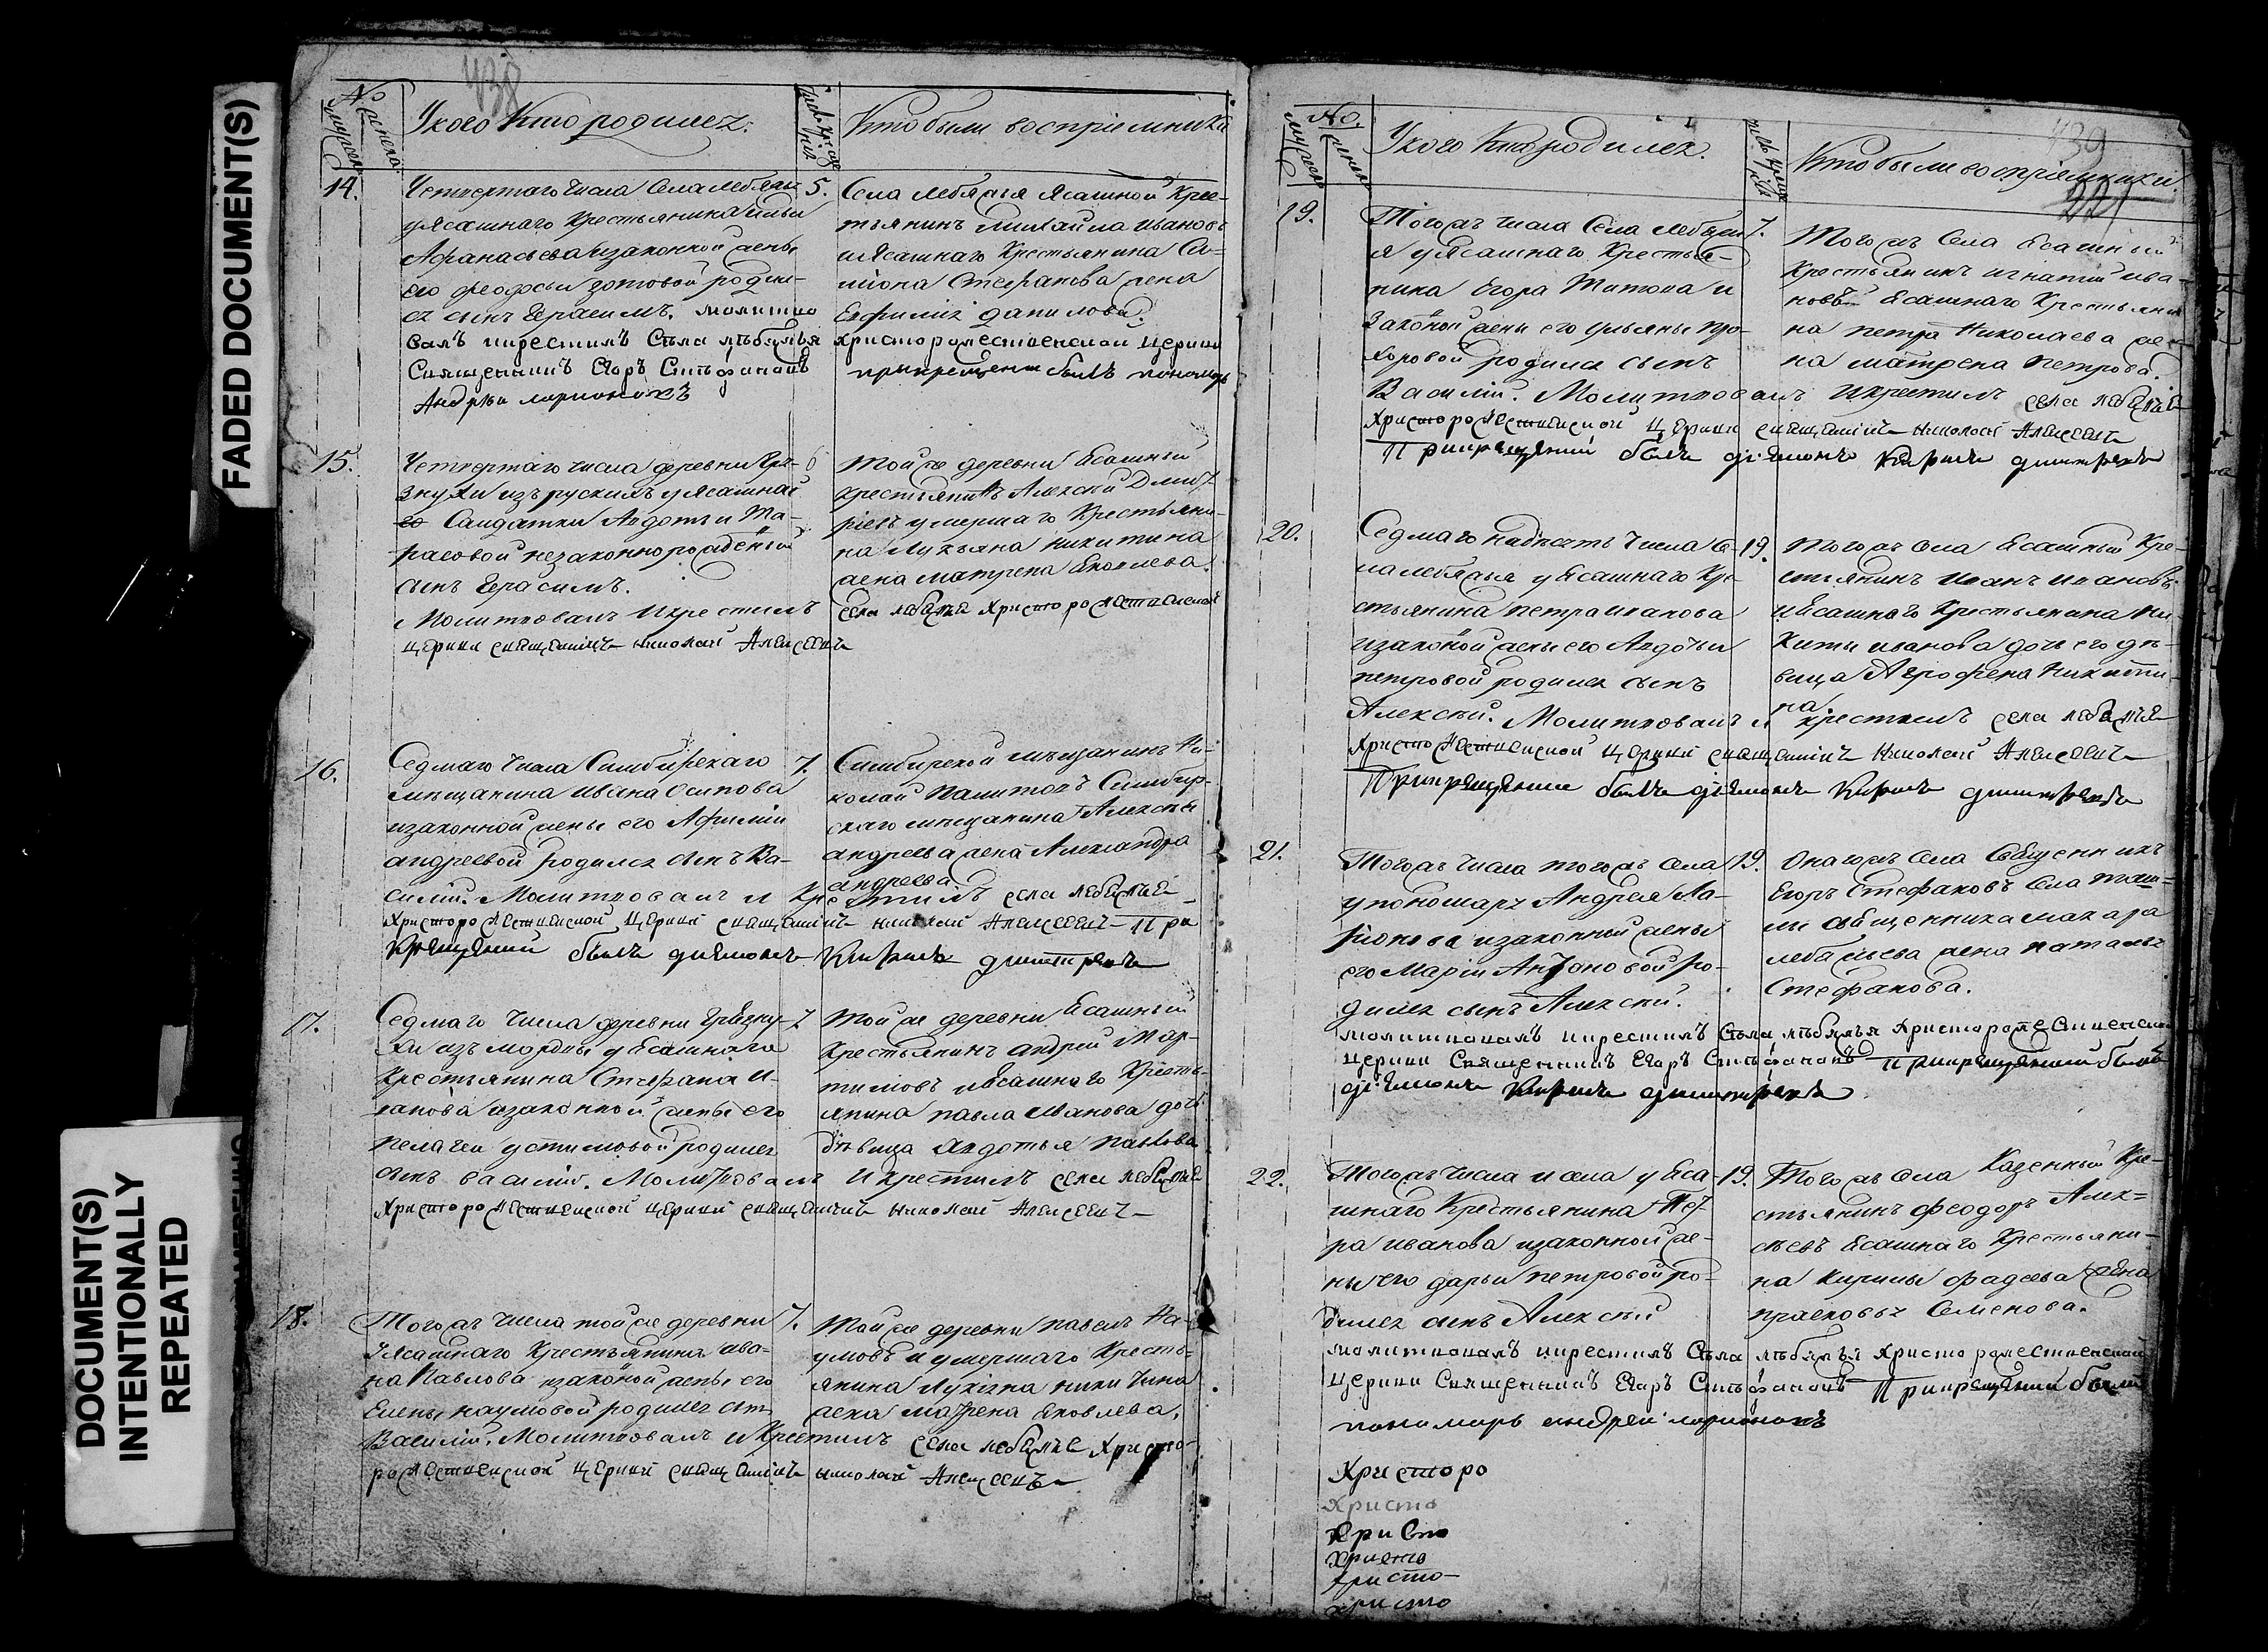 FADED DOCUMENT(S)
DOCUMENT(S)
INTENTIONALLY
REPEATED
438
No
У кого Кто родилсѧ.
Кто были воспріемники
14.
Четвертаго числа Села лебяжья
у Ясашнаго крестьянина
Афанасьева и законной жены
его феодосьи зотовой родил-
сѧ сынъ Герасимъ. молитво
валъ икрестилъ Села лѣбяжья
Священникъ Егоръ Стефановъ
Андрѣи ларионовъ
5.
Села лебяжья Ясашной Крес-
тьянинъ Михайла Ивановъ
и Ясашнаго Крестьянина Си-
міона Стефанова жена
Евфимія данилова.
христорожественской церкви
прикрещени былъ пономарь
15.
Четвертаго числа деревни Гря-
знухи изъ рускихъ у Ясашной
Салдатки Авдотьи Та-
расовой незаконнорожденый
сынъ Герасимъ.
Молитвовалъ Икрестилъ
церкви священникъ николай Алексеевъ
6
Той же деревни Ясашный
крестьянинъ Алексѣй Дмит-
ріевъ умершаго Крестьяни-
на Лукьяна Никитина
жена матрена Яковлева.
села лебяжья христорожественской
16.
Седмаго числа Симбирскаго
мѣщанина Ивана Осипова
изаконной жены его Афиміи
андреевой родился сынъ Ва-
силій. Молитвовалъ и крестилъ села лебяжья
христорожественской церкви священникъ николай Алексеевъ При
крещении былъ дияконъ Кирилъ димитревъ
7.
Симбирской мѣщанинъ Ни-
колай Палитовъ Симбир-
скаго мѣщанина Алексѣя
андреева жена Александра
андреева
17.
Седмаго числа деревни Грязну-
хи изъ мордвы у Ясашнаго
Крестьянина Стефана И-
ванова изаконной жены его
пелагеи устимовой родилсѧ
сынъ василій. Молитвовалъ Икрестилъ села лебяжье
христорожественской церкви священникъ николай Алексеевъ
7
Той же деревни Ясашный
Крестьянинъ андрей Мар-
тимовъ иЯсашнаго Кресть-
янина павла Иванова дочь
дѣвица Авдотья павлова
18.
Тогожъ числа тойже деревни
У Ясашнаго Крестьянина ива-
на Павлова изаконой жены его
Елены наумовой родилсѧ сынъ
Василій. Молитвовалъ и Крестилъ села лебяжье христо-
рожественской церкви священникъ николай Алексеевъ
7.
Той же деревни павелъ На-
умовъ и умершаго Кресть-
янина Лукіяна никитина
жена матрена Яковлева.
439
221
No.
У кого Кто родилсѧ.
Кто были воспріемники.
19.
Тогожъ числа Села лебяжь-
я у Ясашнаго Крестья-
нина Егора Титова и
Законой жены его Ульяны про-
хоровой родился сынъ
Василій. Молитвовалъ Икрестилъ села лебяжье
христорожественской церкви священникъ николай Алексеевъ
Прикрещении былъ дияконъ Кирилъ димитревъ
7.
Тогожъ Села Ясашный
Крестьянинъ игнатій ива-
новъ Ясашнаго Крестьяни
на петра Николаева же-
на матрена петрова.
20.
Седмагонадцеть числа Се-
ла лебяжья у Ясашнаго Кре-
стьянина петра иванова
изаконой жены его Авдотьи
петровой родилсѧ сынъ
Алексѣй. Молитвовалъ и крестилъ села лебяжья
христорожественской церкви священникъ николай Алексеевъ
Прикрещении былъ дияконъ Кирилъ димитревъ
19.
Тогожъ села Ясашный Кре-
стьянинъ иванъ ивановъ.
иЯсашнаго Крестьянина Ни-
киты иванова дочь его дѣ-
вица Агрофена Никити-
на
21.
Тогожъ числа тогожъ села
у пономаря Андрея Ла-
ріонова изаконной жены
его Маріи Антоновой ро-
дилсѧ сынъ Алексѣй.
молитвовалъ икрестилъ Села лѣбяжья христорожественской
церкви Священникъ Егоръ Стефановъ Прикрещении былъ
дияконъ Кирилъ димитревъ
19.
Онагожъ села Священникъ
Егоръ Стефановъ Села таш-
лы священника макара
лебедева жена наталья
Стефанова.
22.
Тогожъ числа и села у Яса-
шнаго Крестьянина Пет-
ра иванова изаконной же-
ны его дарьи петровой ро-
дилсѧ сынъ Алексѣй
молитвовалъ икрестилъ Села лѣбяжья христорожественской
церкви Священникъ Егоръ Стефановъ Прикрещении былъ
пономарь андреи ларионовъ
19.
Тогожъ села Казенный Кре-
стьянинъ феодоръ Алек-
сѣевъ Ясашнаго Крестьяни-
на Кирилы фадеева жена
прасковья Семенова.
Христоро
христо
христо
христо
христо
христо